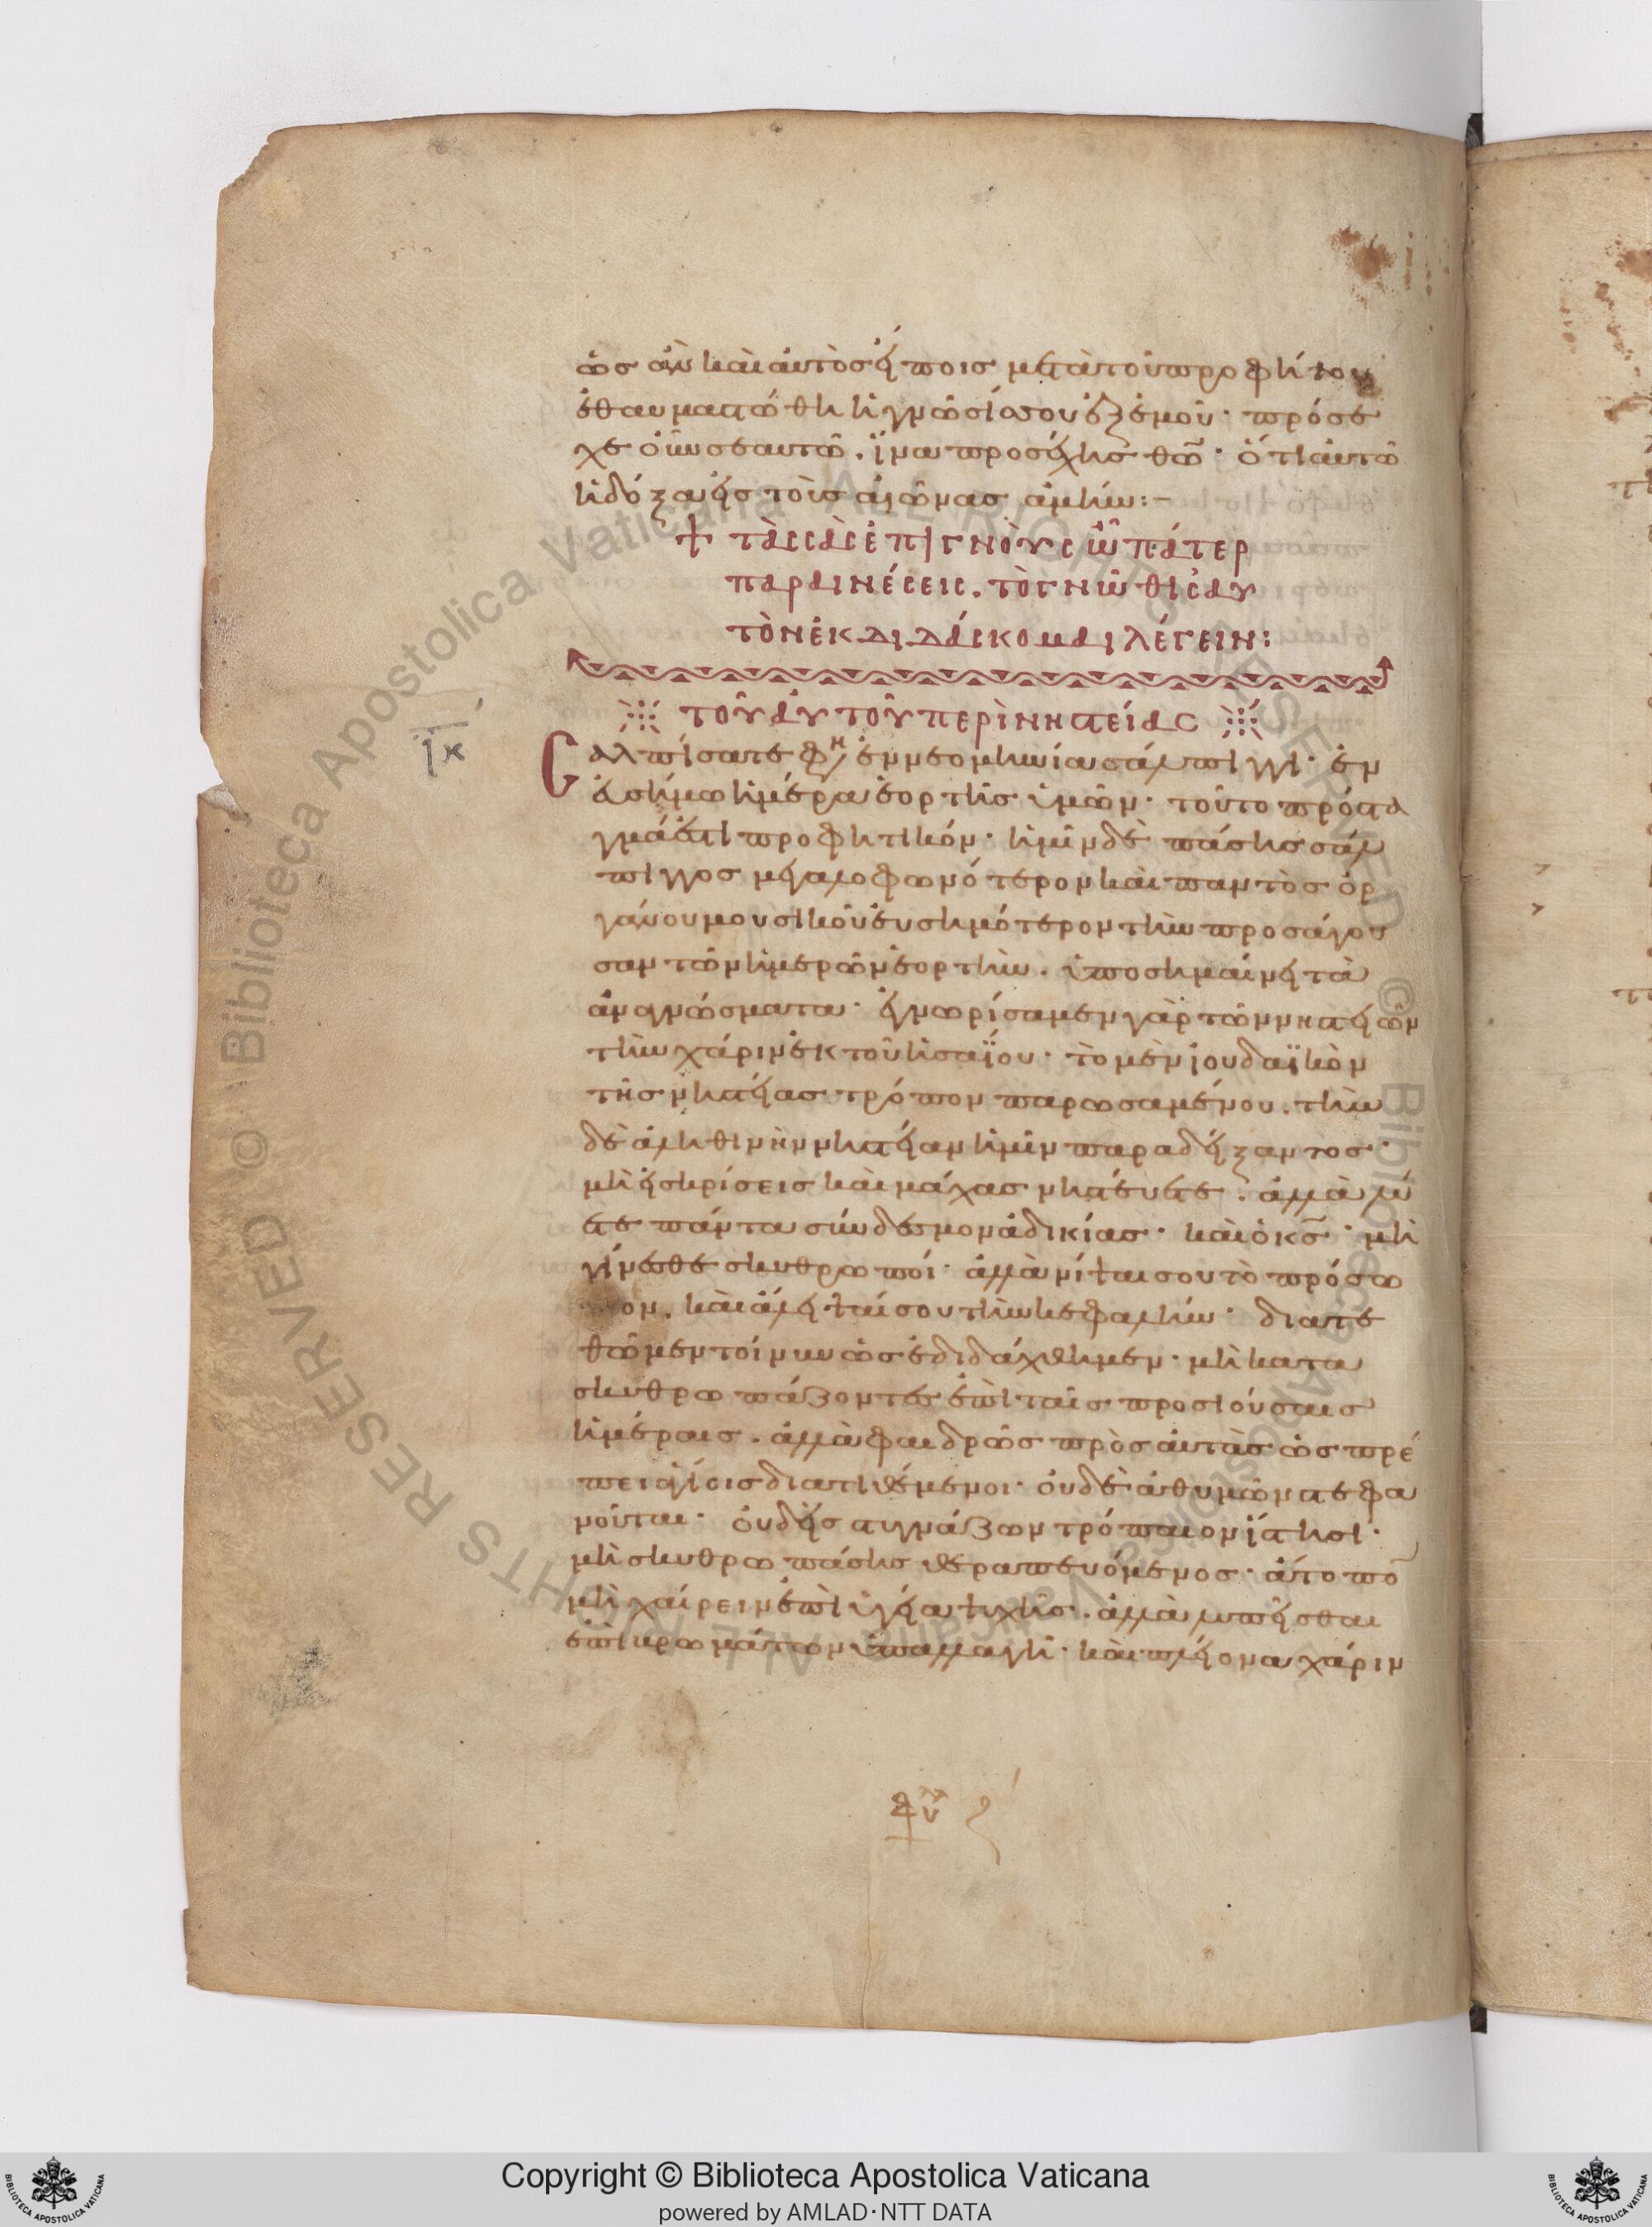 ὡς ἂν καὶ αὐτὸς εἴποις μετὰ τοῦ προφήτου
ἐθαυμαστώθη ἡ γνῶσίς σου ἐξ ἐμοῦ· πρόσε
χε οὖν σεαυτῶ. ἵνα προσέχης θῶ· ὅτι αὐτῶ
ἡ δόξα εἰς τοὺς αἰῶνας ἀμήν:–
+ τὰς σὰς ἐπιγνοὺς ὦ πάτερ
παραινέσεις. τὸ γνῶθι σαυ
τὸν ἐκδιδάσκομαι λέγειν:
τοῦ αὐτοῦ περὶ νηστείας
ικ
Σαλπίσατε φη ἐν νεομηνία σάλπιγγι· ἐν
εὐσήμω ἡμέρα ἑορτῆς ὑμῶν· τοῦτο πρόστα
γμά ἐστι προφητικόν· ἡμῖν δὲ πάσης σάλ
πιγγος μεγαλοφωνότερον καὶ παντὸς ὀρ
γάνου μουσικοῦ εὐσημότερον τὴν προσάγου
σαν τῶν ἡμερῶν ἑορτὴν. ὑποσημαίνει τὰ
ἀναγνώσματα· ἐγνωρίσαμεν γὰρ τῶν νηστειῶν
τὴν χάριν ἐκ τοῦ ἡσαΐου· τὸ μὲν ἰουδαϊκὸν
τῆς νηστείας τρόπον παρωσαμένου. τὴν
δὲ ἀληθινὴν νηστείαν ἡμῖν παραδείξαντος·
μὴ εἰς κρίσεις καὶ μάχας νηστεύετε. ἀλλὰ λύ
ετε πάντα σύνδεσμον ἀδικίας· καὶ ὁ κς· μὴ
γίνεσθε σκυθρωποί· ἀλλὰ νίψαι σου τὸ πρόσω
πον. καὶ ἄλειψαί σου τὴν κεφαλήν· διατε
θῶμεν τοίνυν ὡς ἐδιδάχθημεν· μὴ κατα
σκυθρωπάζοντες ἐπὶ ταῖς προσιούσαις
ἡμέραις. ἀλλὰ φαιδρῶς πρὸς αὐτὰς ὡς πρέ
πει ἁγίοις διατιθέμενοι· οὐδεὶς ἀθυμῶν στεφα
νοῦται· οὐδεὶς στυγνάζων τρόπαιον ἵστησι·
μὴ σκυθρωπάσης θεραπευόμενος· ἄτοπον
μὴ χαίρειν ἐπὶ ὑγεία ψυχῆς. ἀλλὰ λυπεῖσθαι
ἐπὶ βρωμάτων ὑπαλλαγῆ· καὶ πλείονα χάριν